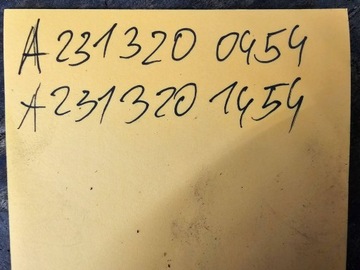 A 231 320 0454
A 231 320 1454